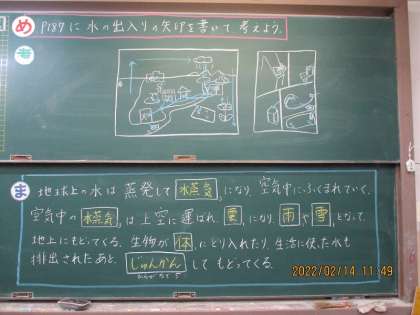 め P187に 水の出入りの矢印を書いて 考えよう。
考
ま 地球上の水は 蒸発して 水蒸気 になり 空気中にふくまれていく。
空気中の 水蒸気 は上空に運ばれ 雲 になり 雨 や 雪 となって
地上にもどってくる。生物が 体 にとり入れたり、生活に使った水も
排出されたあと、 じゅんかん してもどってくる。
ひらがなで5
2022/02/14 11:49